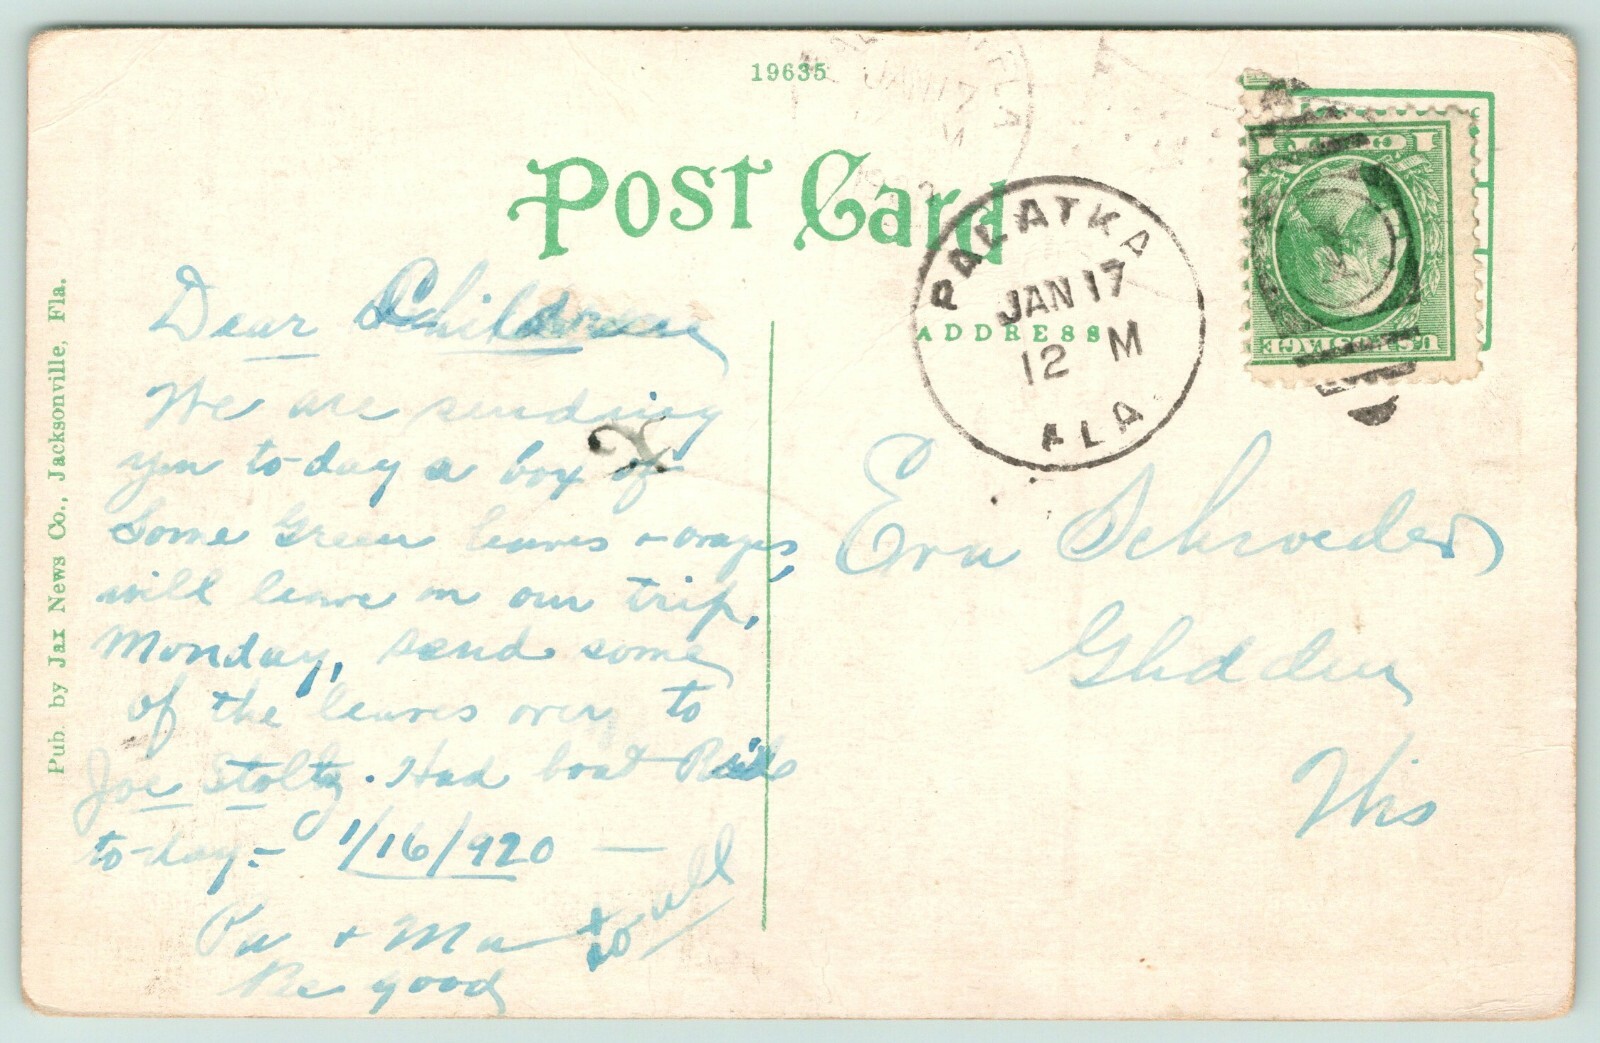 19635
Post Card
ADDRESS
PALATKA
JAN 17
12 M
FLA.
1 CENT 1
U.S. POSTAGE
Pub. by Jax News Co., Jacksonville, Fla.
Dear Children
We are sending
you to-day a box of
Some Green leaves + oranges,
will leave on our trip,
Monday, send some
of the leaves over to
Joe Stoltz. Had boat Ride
to-day.- 1/16/920 —
Pa + Ma to all
Be good
Eva Schroeder
Glidden
Wis